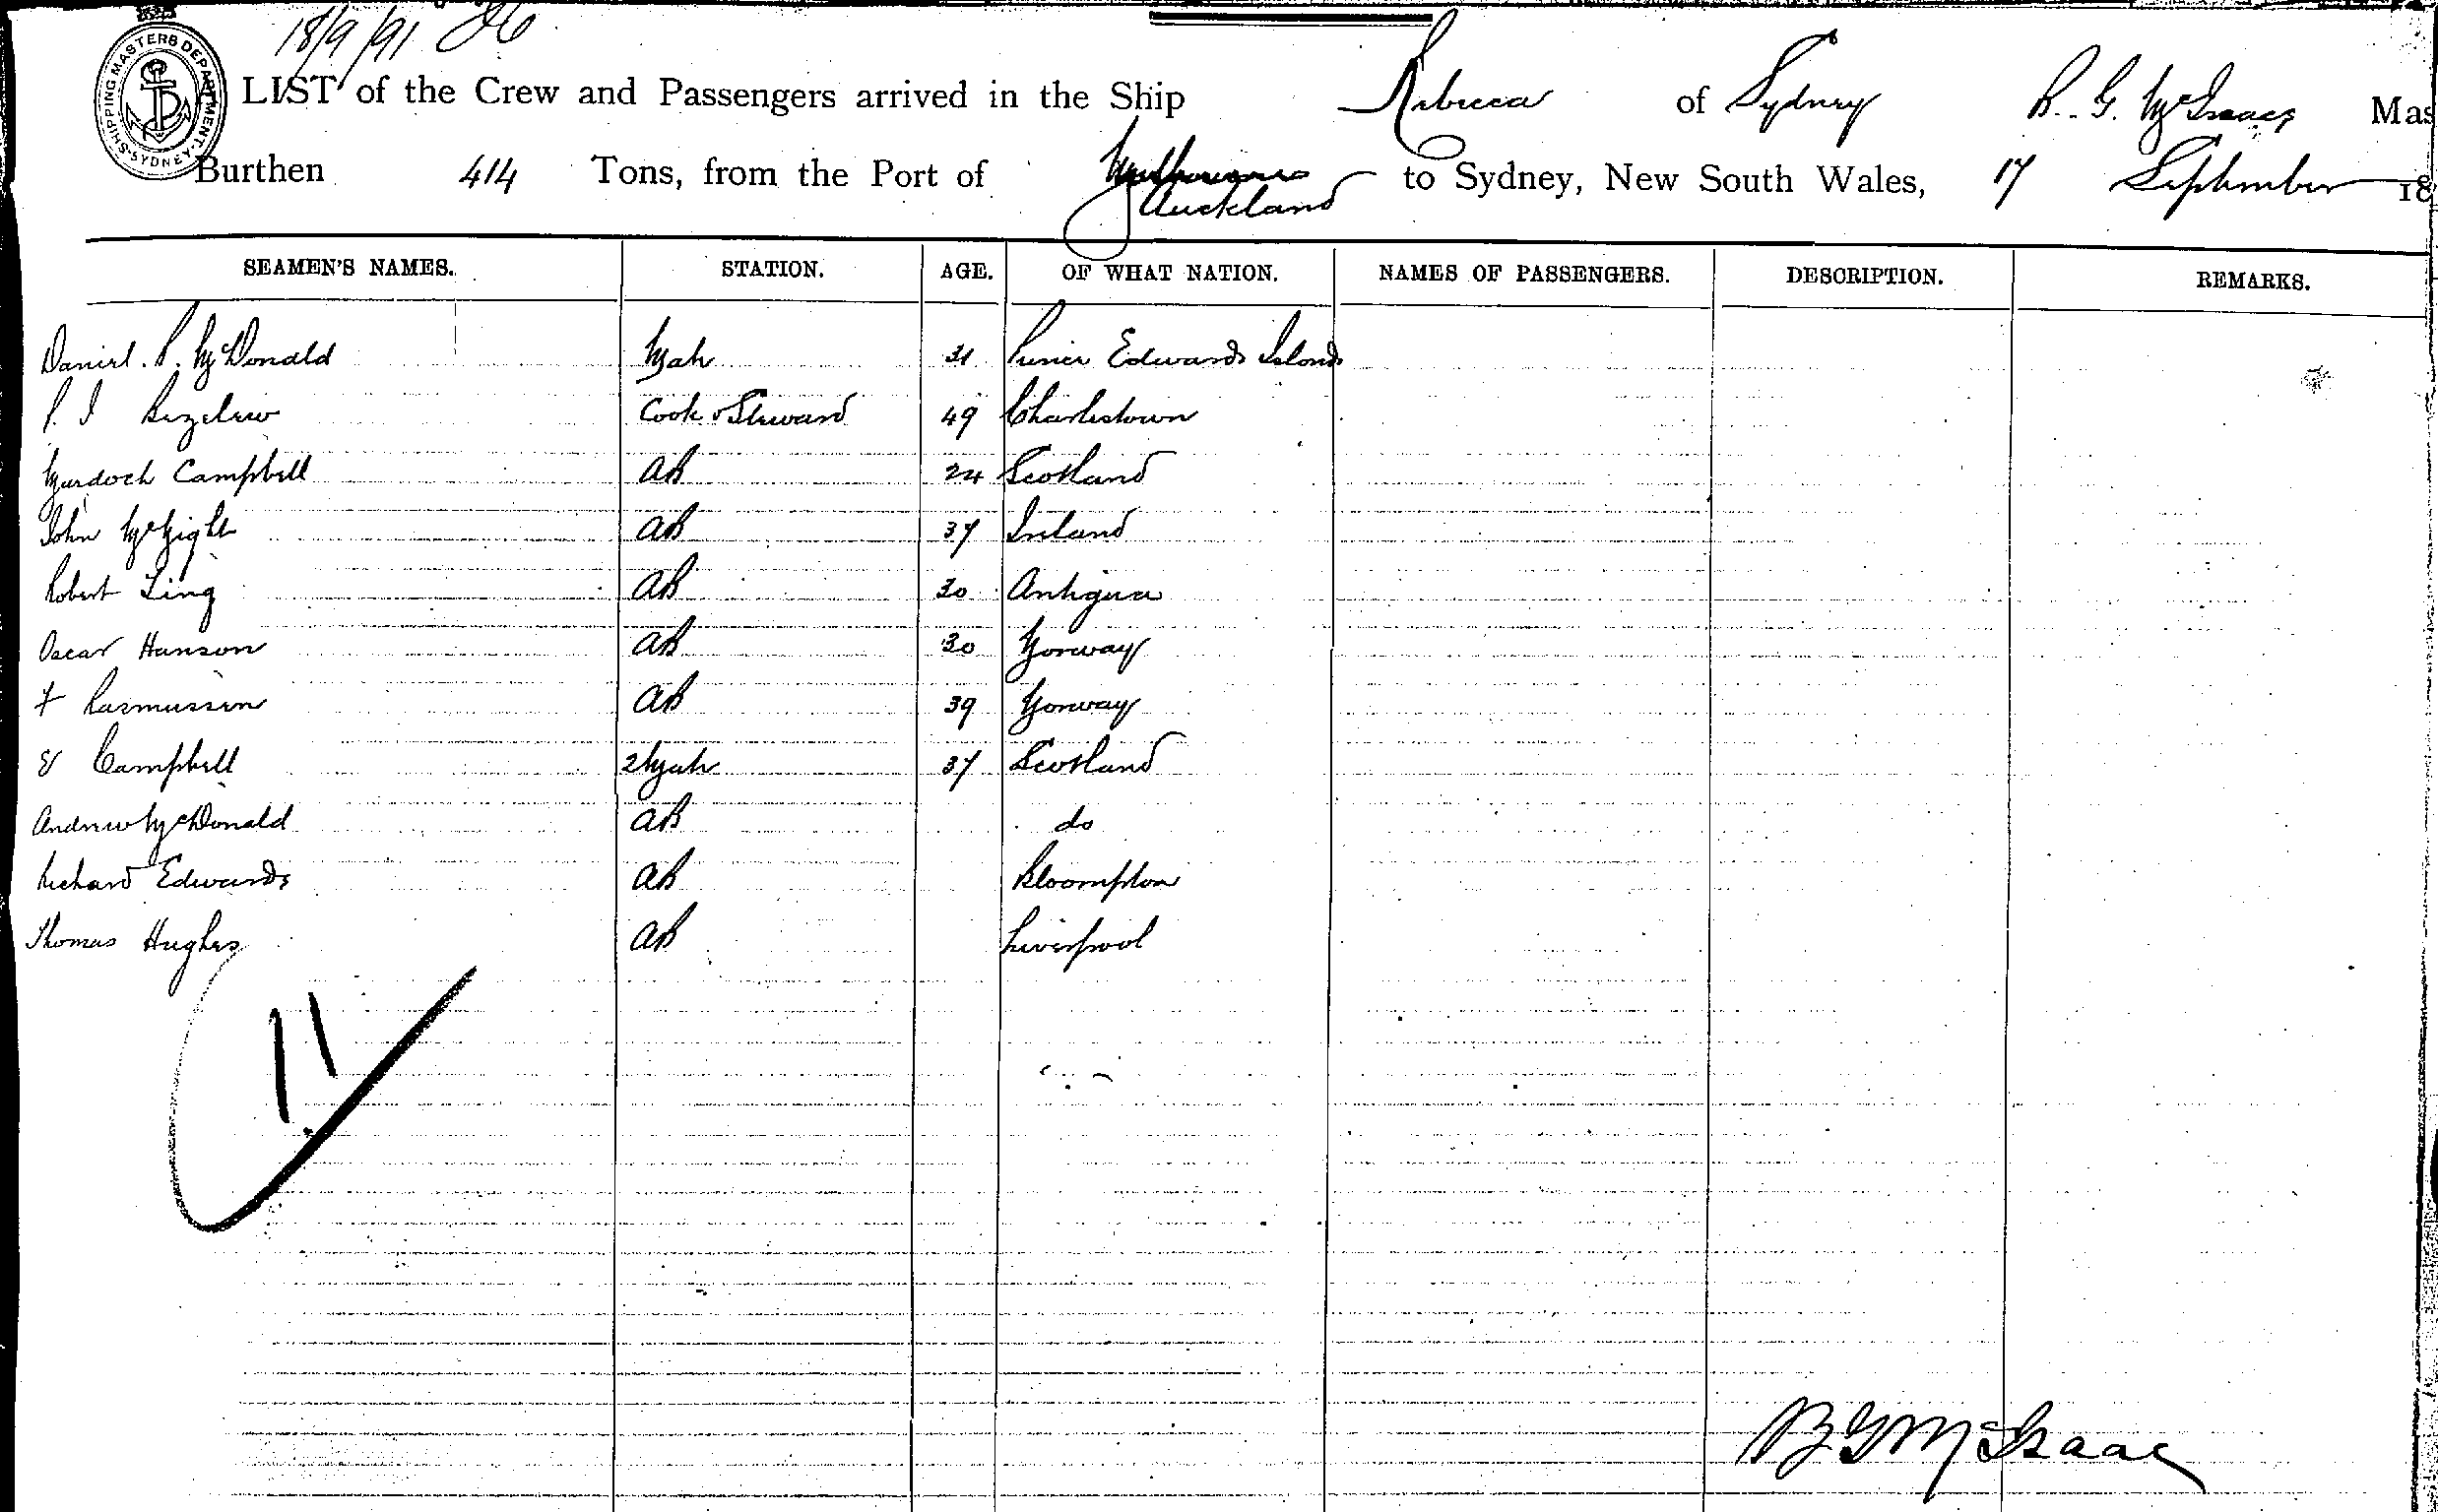 18/9/91 26
SHIPPING MASTERS DEPARTMENT. SYDNEY.
LIST of the Crew and Passengers arrived in the Ship Rebecca of Sydney B. G. McIsaac Mas
Burthen 414 Tons, from the Port of Auckland to Sydney, New South Wales, 17 September 18
SEAMEN'S NAMES. STATION. AGE. OF WHAT NATION. NAMES OF PASSENGERS. DESCRIPTION. REMARKS.
Daniel. R. McDonald Mate 31 Prince Edwards Island
Cook & Steward 49 Charlestown
Murdoch Campbell AB 24 Scotland
John AB 37 Ireland
Robert King AB 30 Antigua
Oscar Hanson AB 30 Norway
F Rasmussen AB 39 Norway
Campbell 2 Mate 37 Scotland
Andrew McDonald AB do
Richard Edwards AB Bloompton
Thomas Hughes AB Liverpool
11
BGMcIsaac